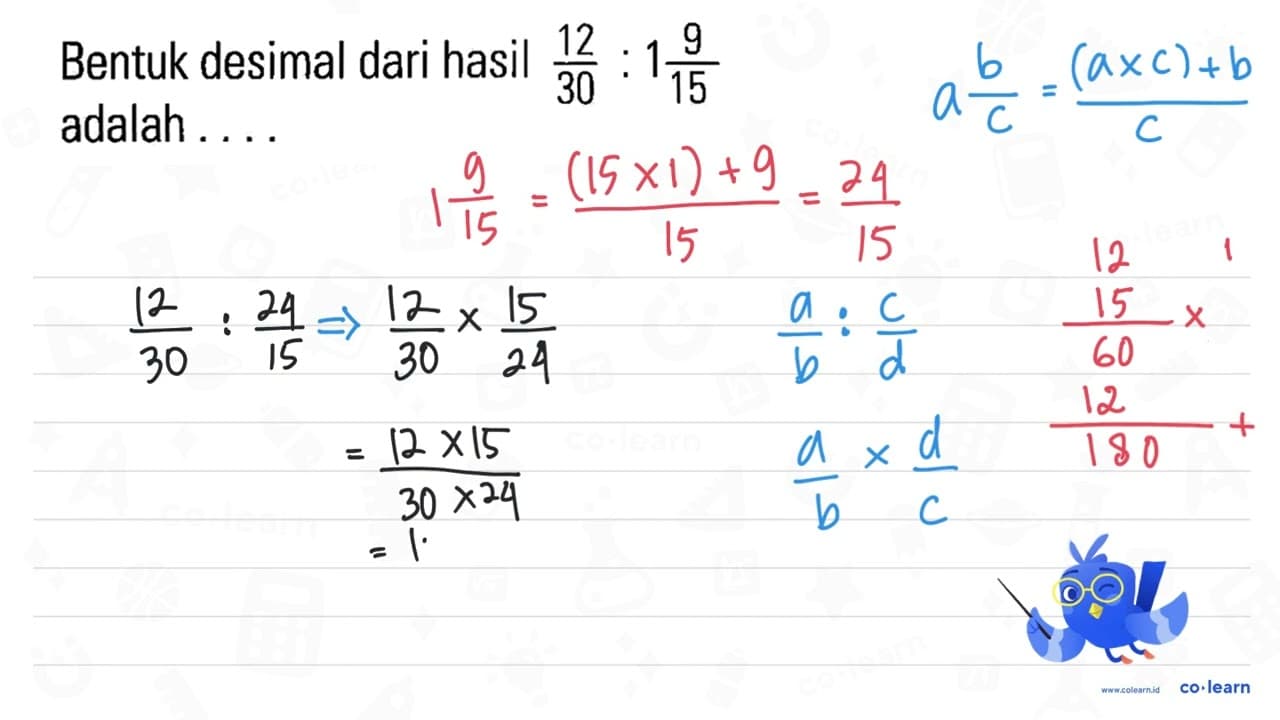 Bentuk desimal dari hasil 12/30 : 1 9/15
adalah . . . .
a b/c = (a x c) + b / c
1 9/15 = (15 x 1) + 9 / 15 = 24/15
12/30 : 24/15 ⇒ 12/30 x 15/24
= 12 x 15 / 30 x 24
= 1
a/b : c/d
a/b x d/c
12 1
15 x
60
12 +
180
www.colearn.id co·learn